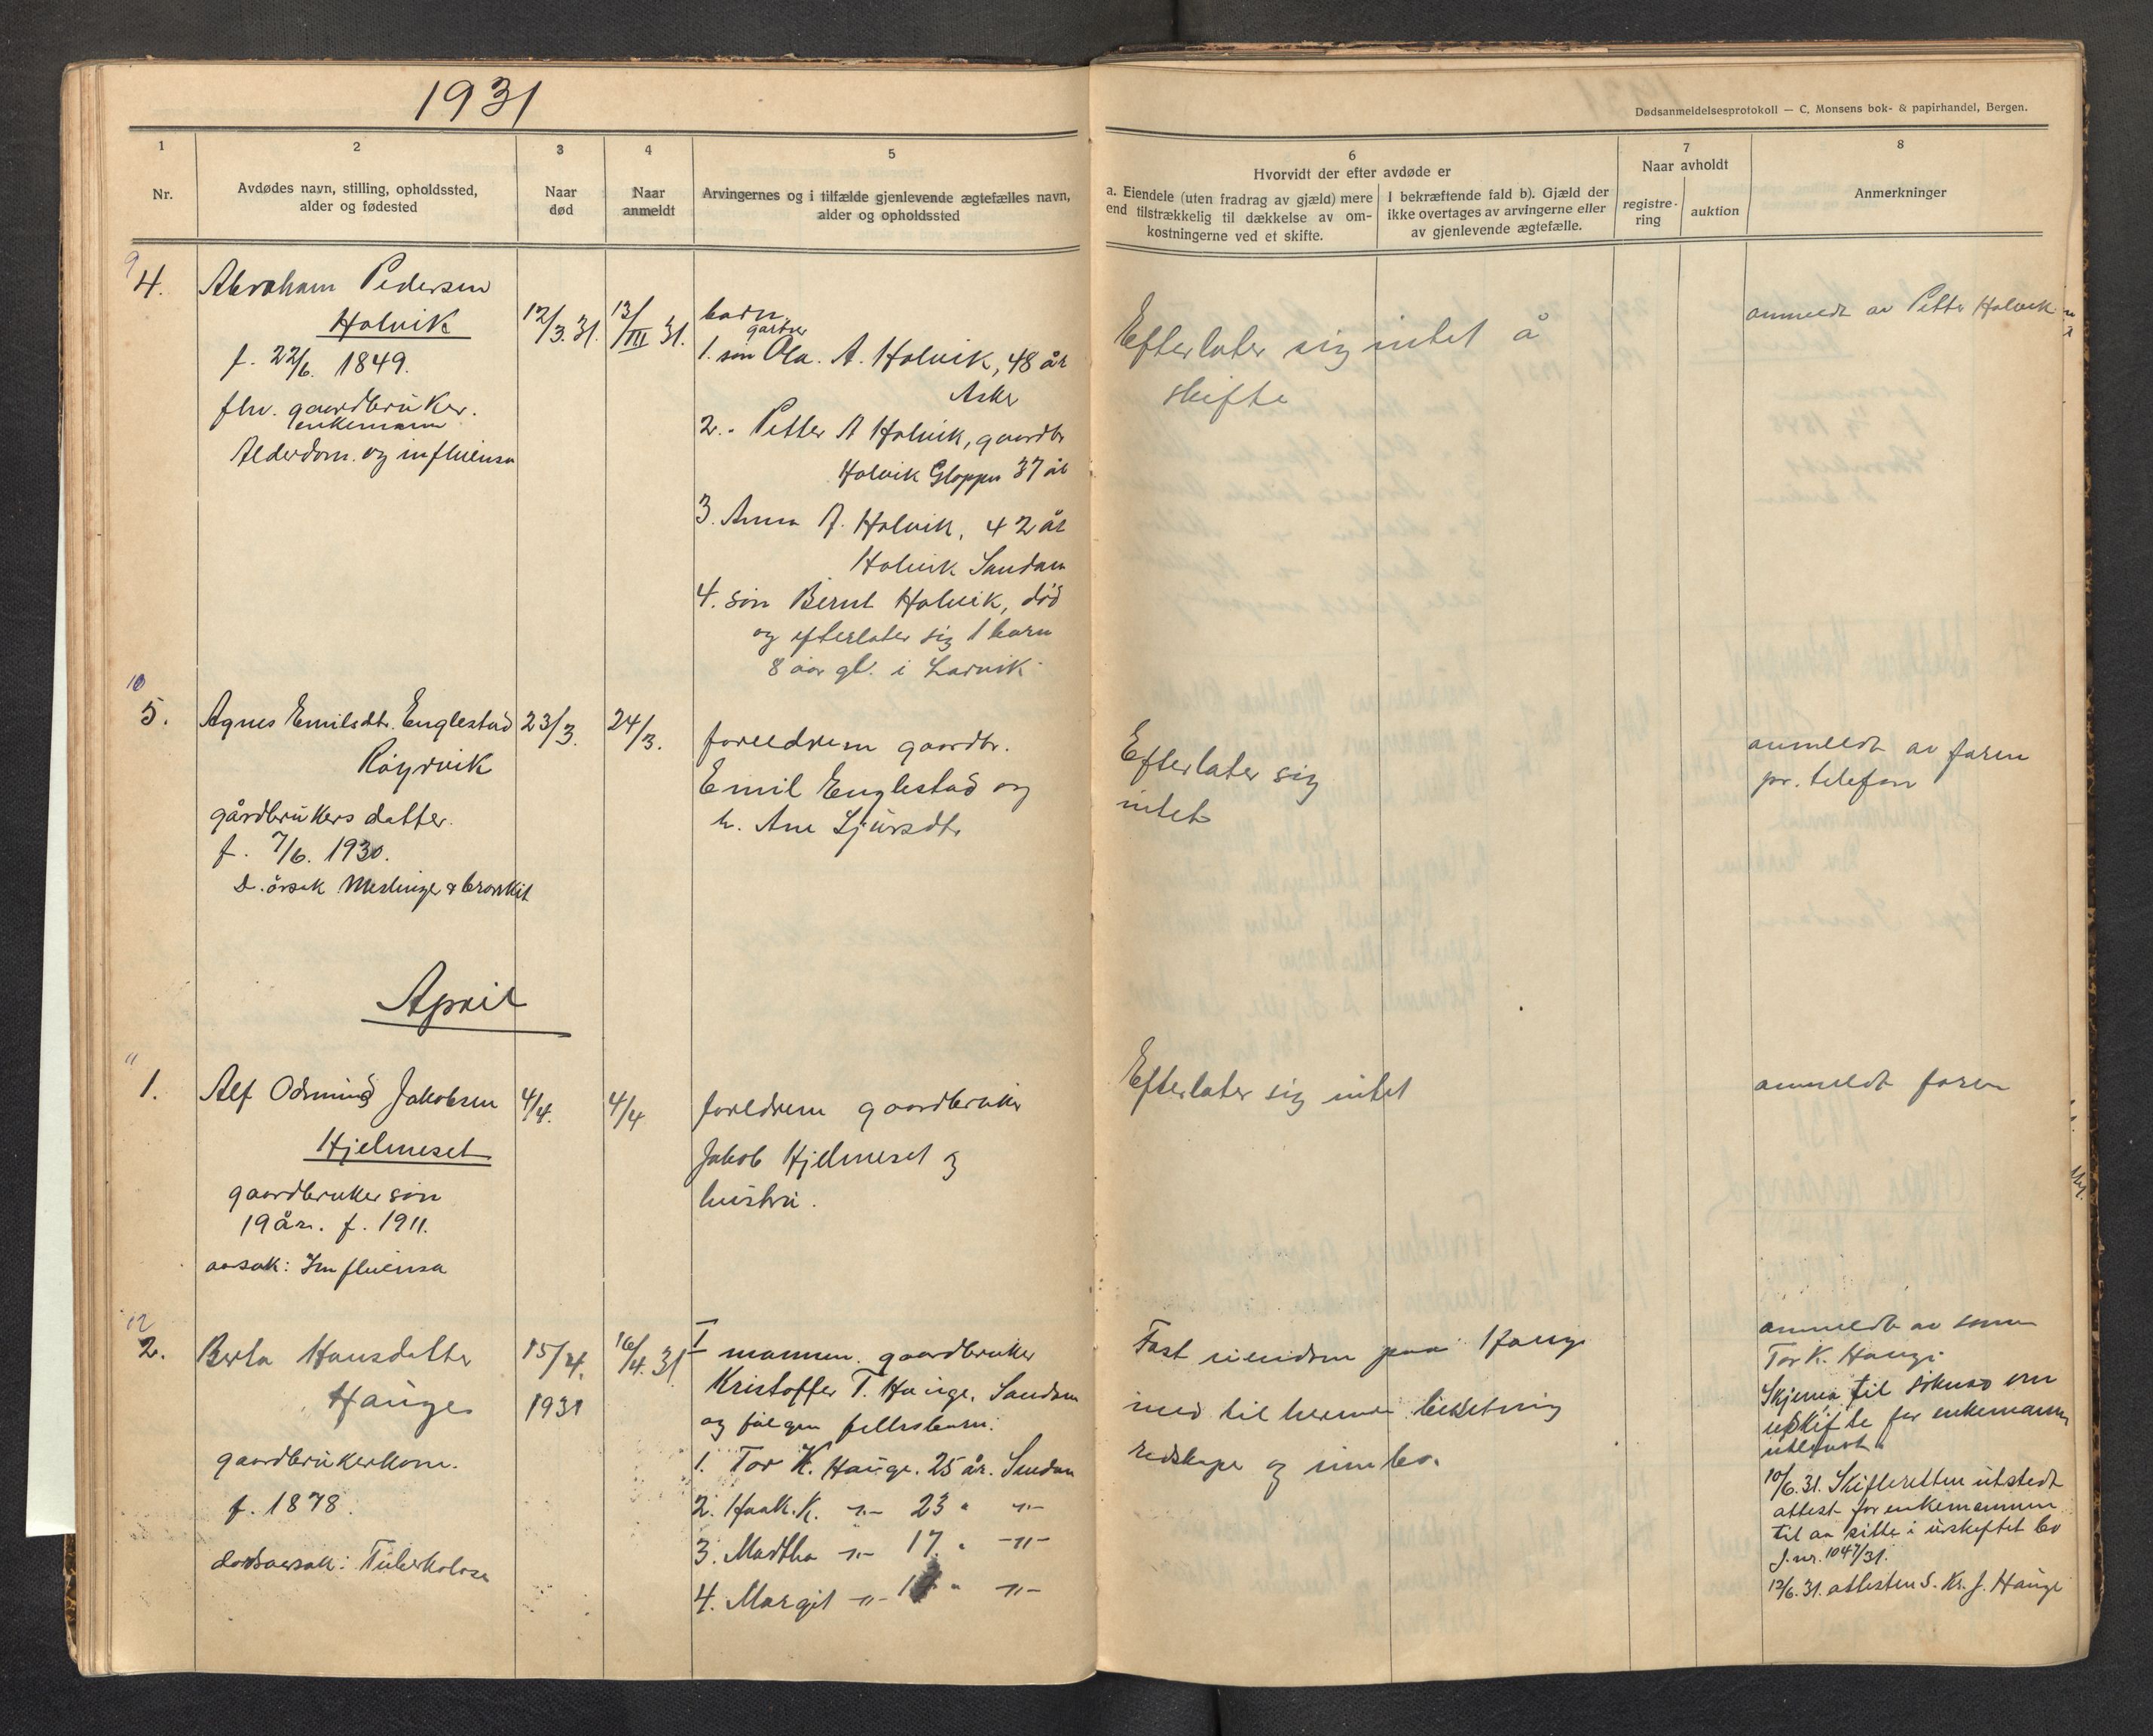 1931
Dødsanmeldelsesprotokoll — C. Monsens bok- & papirhandel, Bergen.
1
Nr.
2
Avdødes navn, stilling, opholdssted,
alder og fødested
3
Naar
død
4
Naar
anmeldt
5
Arvingernes og i tilfælde gjenlevende ægtefælles navn,
alder og opholdssted
6
Hvorvidt der efter avdøde er
a. Eiendele (uten fradrag av gjæld) mere
end tilstrækkelig til dækkelse av om-
kostningerne ved et skifte.
I bekræftende fald b). Gjæld der
ikke overtages av arvingerne eller
av gjenlevende ægtefælle.
7
Naar avholdt
registre-
ring
auktion
8
Anmerkninger
9
4.
Abraham Pedersen
Holvik
f. 22/6. 1849.
fhv. gaardbruker.
enkemann
Alderdom og influensa
12/3.31.
13/III 31.
barn
gartner
1. søn Ola. A. Holvik, 48 år
Asker
2. - Petter A Holvik, gaardbr
Holvik Gloppen 37 år
3. Anna A. Holvik, 42 år
Holvik Sandane
4. søn Bernt Holvik, død
og efterlater sig 1 barn
8 aar gl. i Larvik.
Efterlater sig intet å
skifte
anmeldt av Petter Holvik
10
5.
Agnes Emilsdtr. Englestad
Røyrvik
gårdbrukers datter.
f. 7/6. 1930.
D. årsak Meslinger & bronkit
23/3.
24/3.
foreldrene gaardbr.
Emil Englestad og
h. Ane Sjursdtr
Efterlater sig
intet
anmeldt av faren
pr. telefon
April
11
1.
Alf Odmund Jakobsen
Hjelmeset
gaardbruker søn
19 år. f. 1911.
aarsak: Influensa
4/4.
4/4
foreldrene gaardbruker
Jakob Hjelmeset og
hustru.
Efterlater sig intet
anmeldt faren
12
2.
Berta Hansdatter
Hauge
gaardbrukerkone.
f. 1878.
dødsaarsak: Tuberkolose
15/4.
1931
16/4.31
I mannen. gaardbruker
Kristoffer T. Hauge. Sandane
og følgen fellesbarn:
1. Tor K. Hauge. 25 år. Sandan
2. Haak. K. -"- 23 " -"-
3. Martha -"- 17. " -"-
4. Margit -"- " -"-
Fast eiendom paa Hauge
med tilhørende besetning
redskaper og innbo.
anmeldt av sønnen
Tor K. Hauge
Skjema til søknad om
uskifte for enkemannen
utlevert
10/6.31. Skifteretten utstedt
attest for enkemannen
til aa sitte i uskiftet bo
J.nr. 1047/31.
12/6.31. attesten s. Kr. J. Hauge